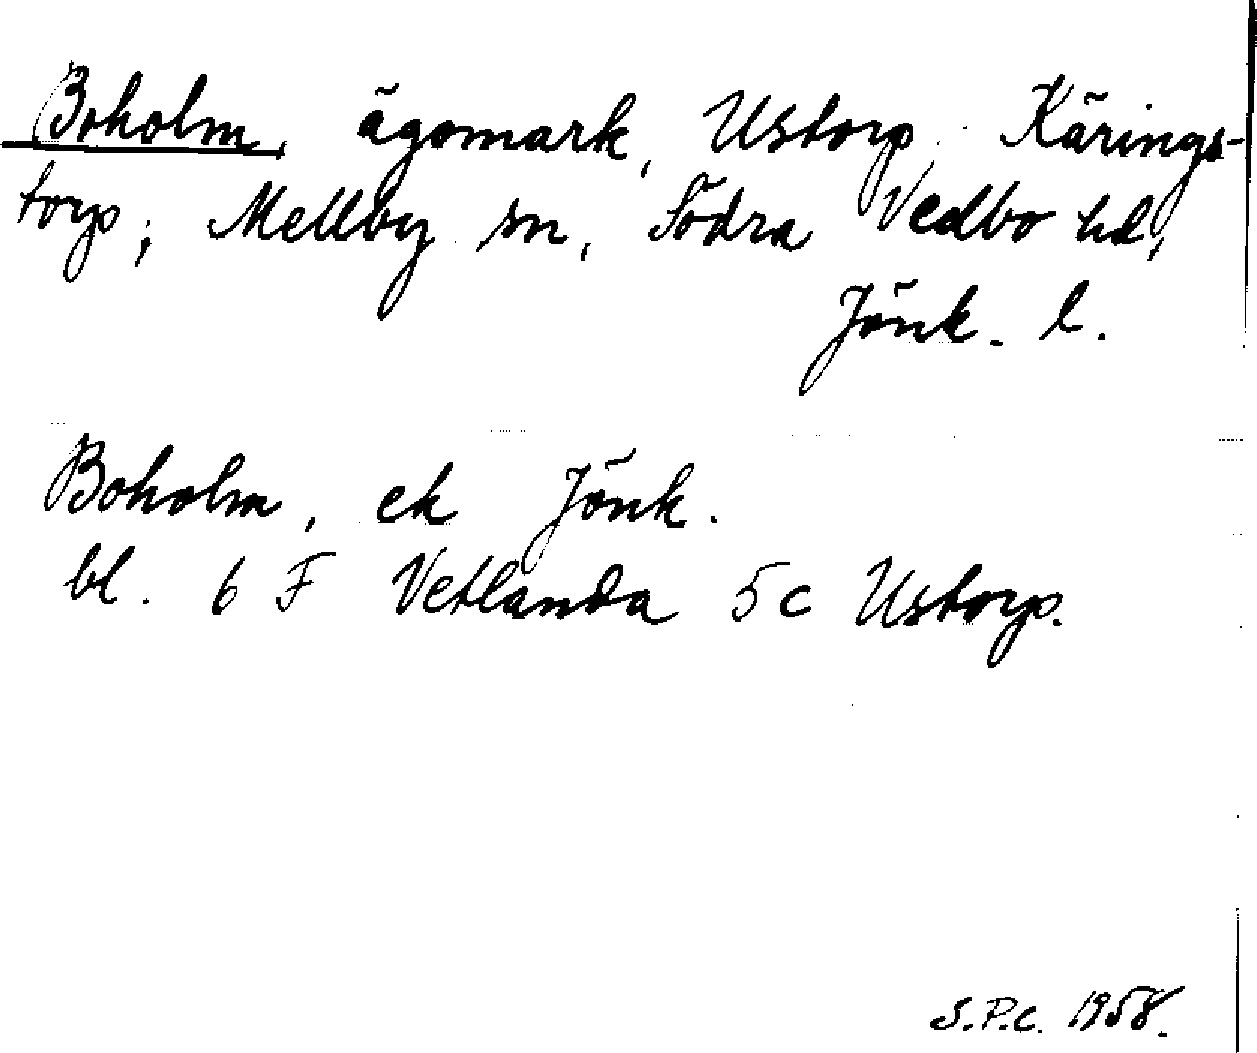 Boholm, ägomark, Ustorp, Kärings-
torp, Mellby sn, Södra Vedbo hd,
Jönk. l.
Boholm, ek Jönk.
bl. 6 F Vetlanda 5c Ustorp.
S.P.C. 1958.